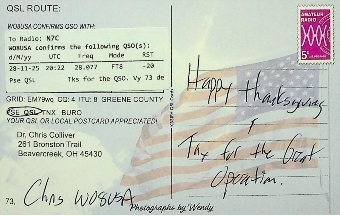 QSL ROUTE:
WO8USA CONFIRMS QSO WITH:
To Radio: N7C
WO8USA confirms the following QSO(s):
d/M/yy UTC Freq Mode RST
28-11-25 20:22 28.077 FT8 -20
Pse QSL Tks for the QSO. Vy 73 de
GRID: EM79wq CQ: 4 ITU: 8 GREENE COUNTY
PSE QSL TNX BURO
YOUR QSL OR LOCAL POSTCARD APPRECIATED!
Dr. Chris Colliver
261 Bronston Trail
Beavercreek, OH 45430
73, Chris WO8USA
Photographs by Wendy
AMATEUR
RADIO
5¢
Happy Thanksgiving
+
Tnx for the Great
Operation.